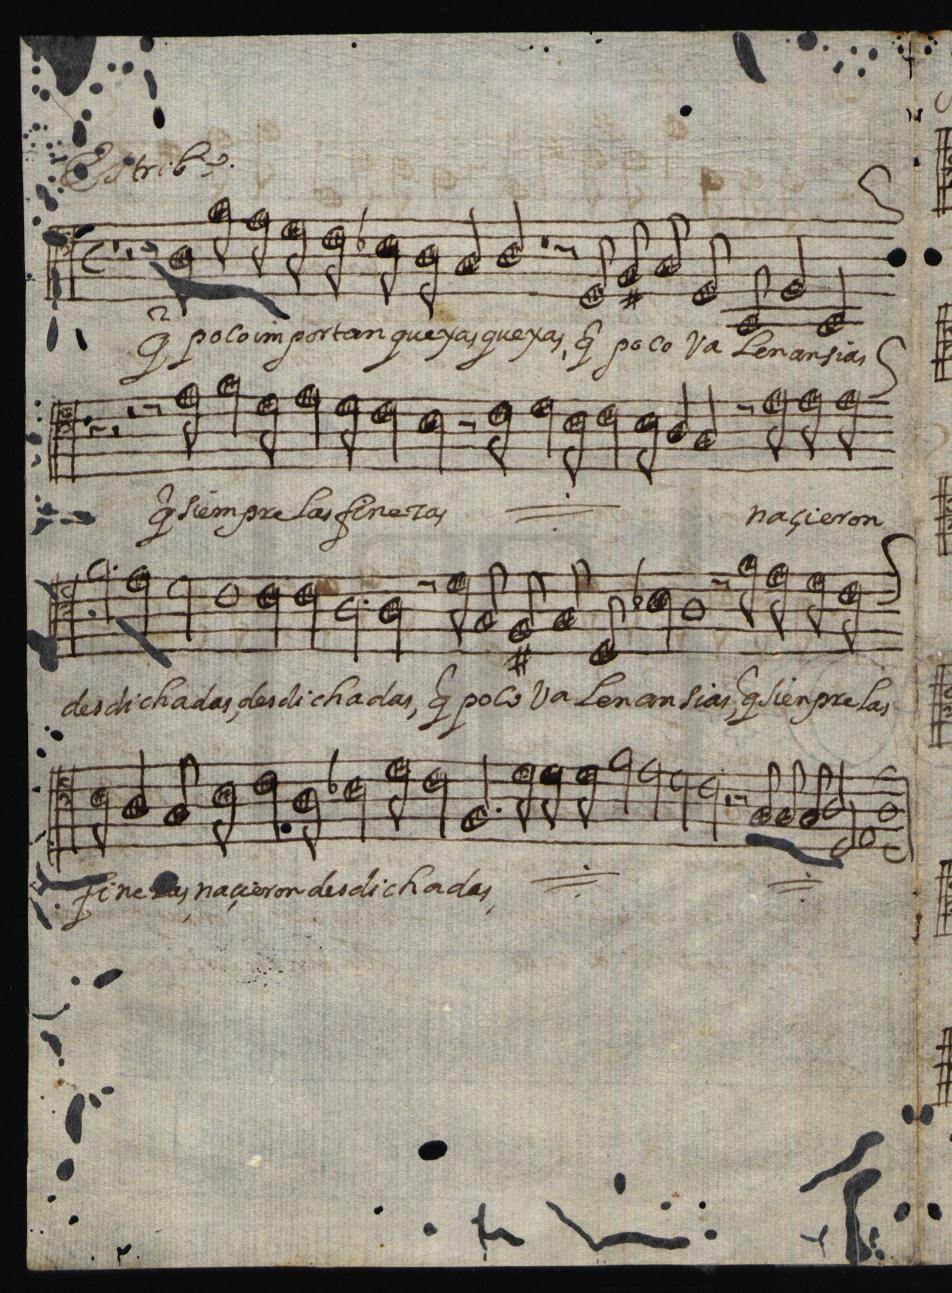 Estribo.
q̃ poco importan quexas quexas, q̃ poco Va Lenansias
q̃ siempre las finezas naçieron
desdichadas, desdichadas, q̃ poco Va Lenansias, q̃ siempre las
finezas, naçieron desdichadas,